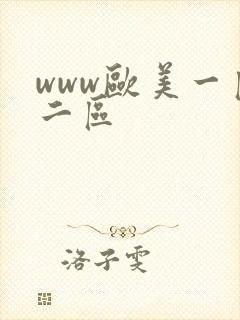 www歐美一
二區
洛子雯